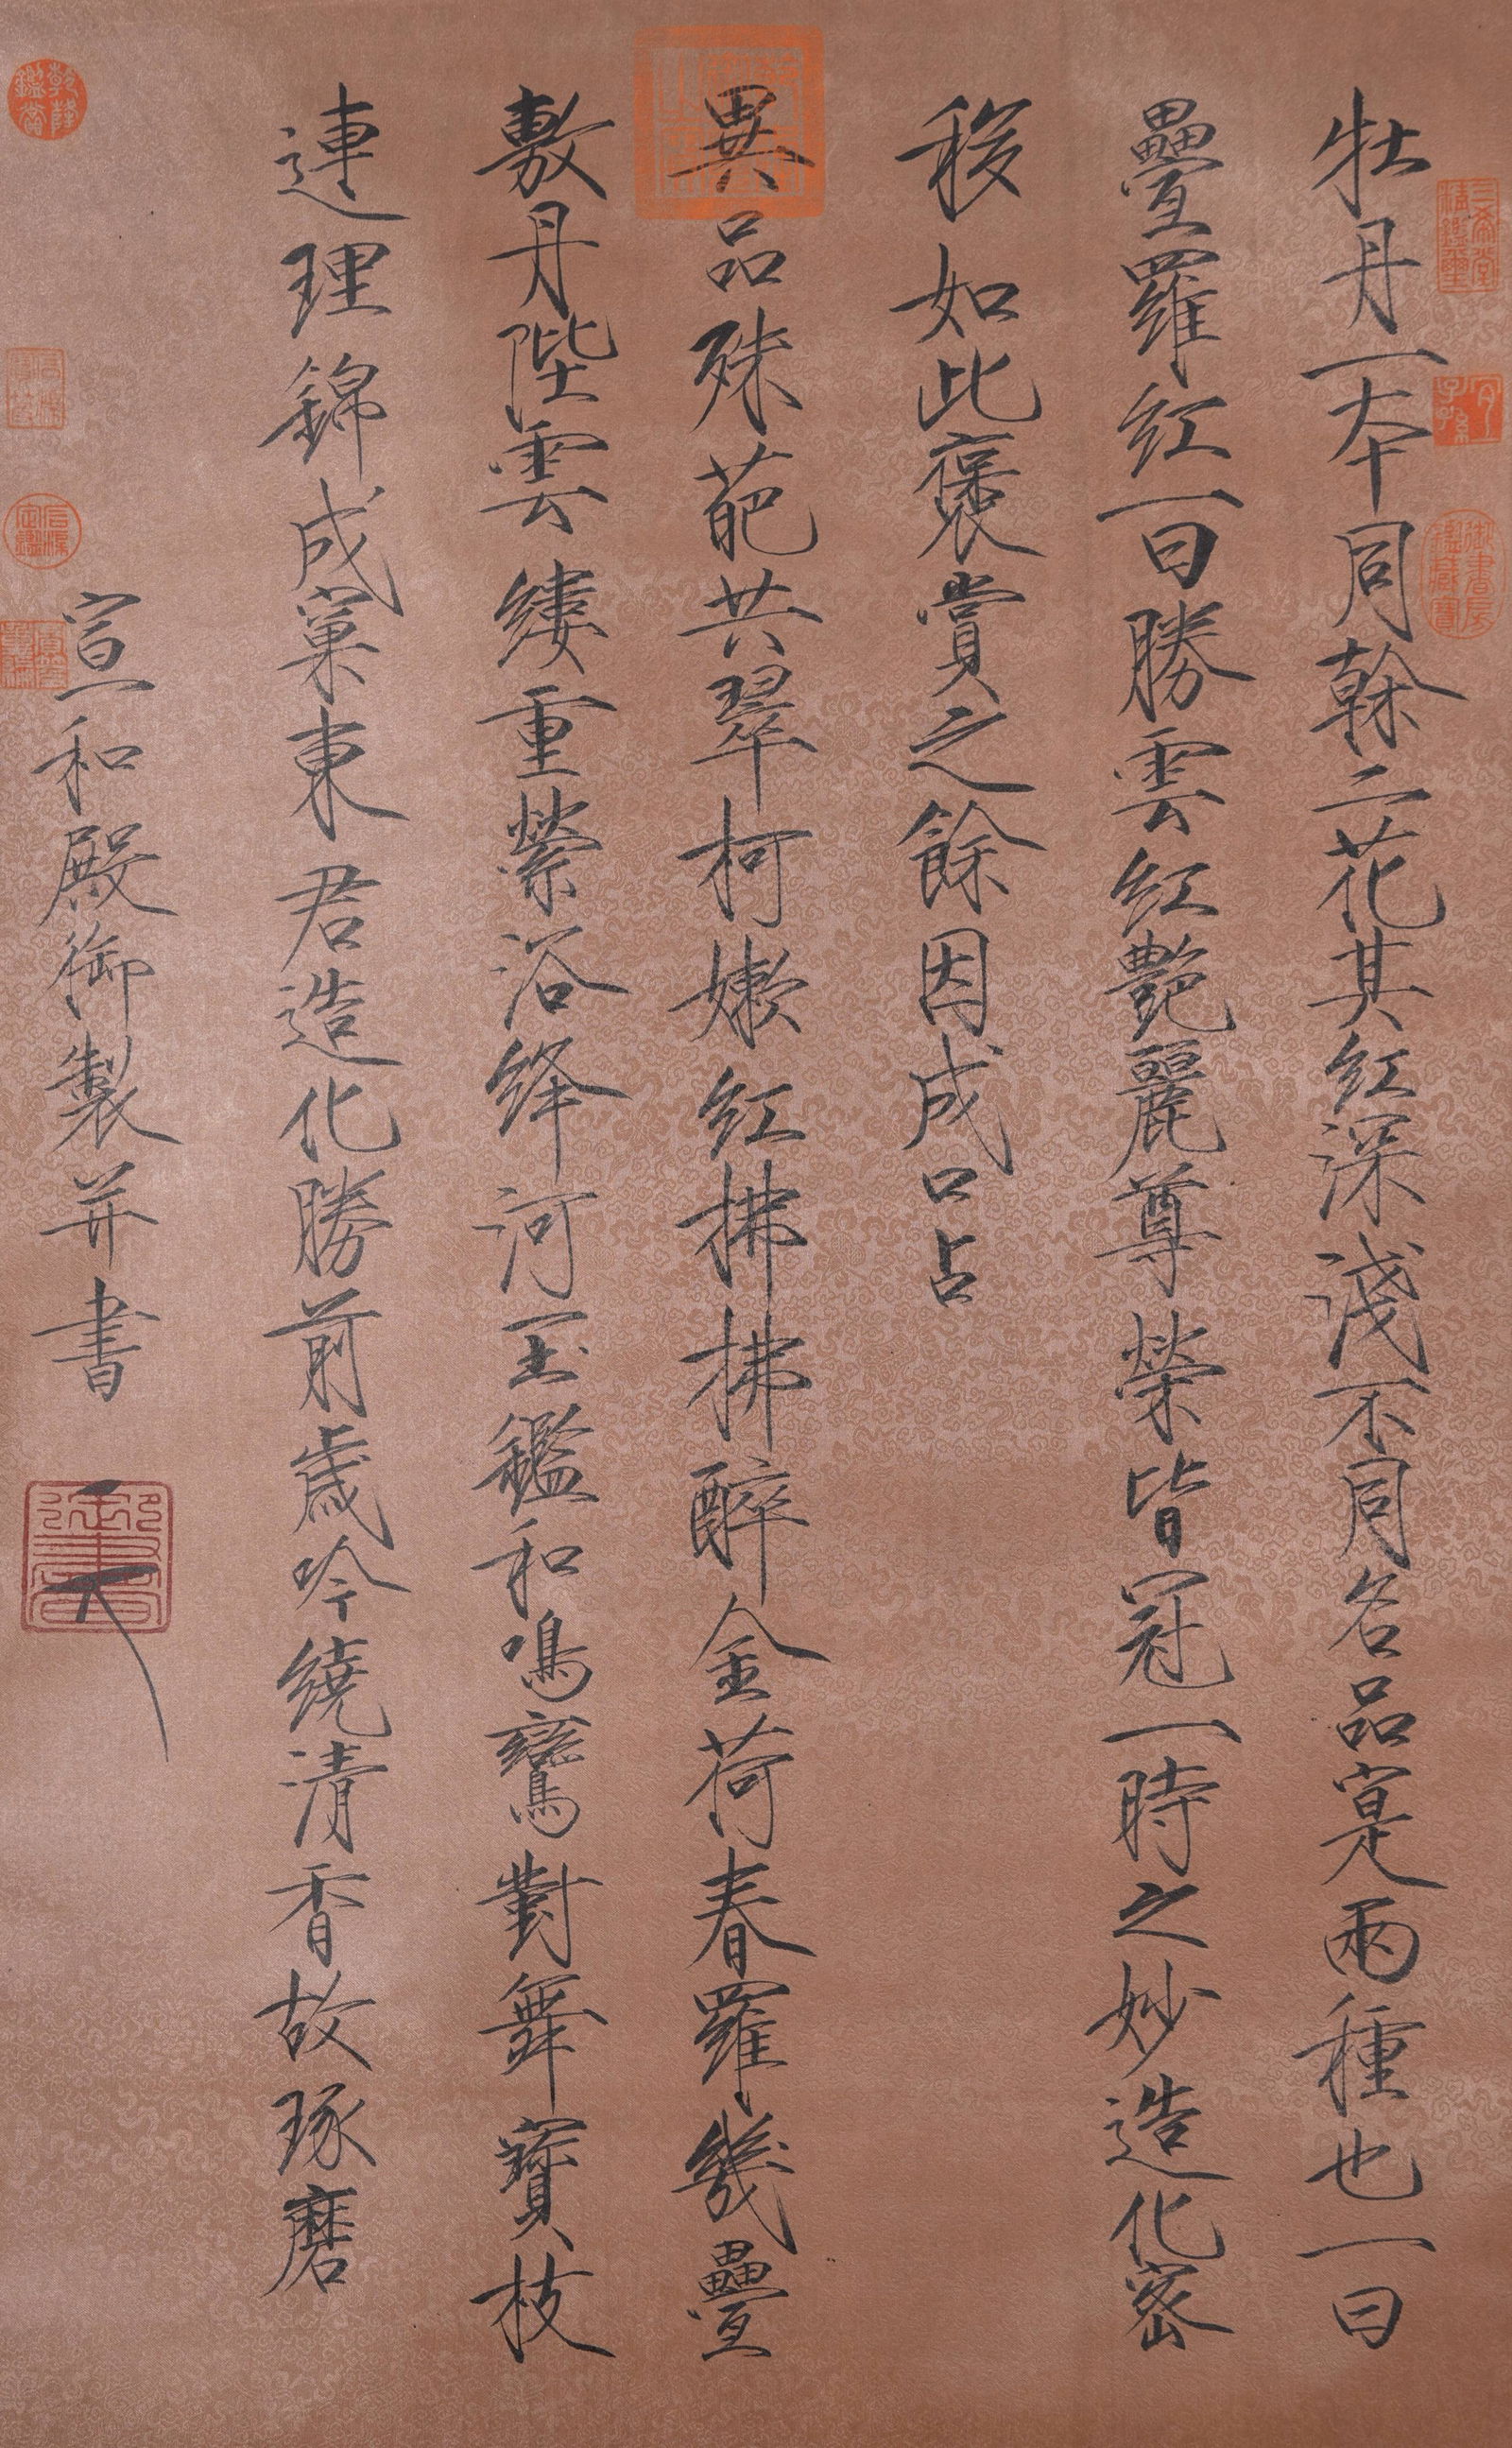 牡丹一本同榦二花其紅深淺不同名品寔兩種也一曰
疊羅紅一曰勝雲紅艷麗尊榮皆冠一時之妙造化密
移如此褒賞之餘因成口占
異品殊葩共翠柯嫩紅拂拂醉金荷春羅幾疊
敷丹陛雲縷重縈浴絳河玉鑑和鳴鸞對舞寶枝
連理錦成窠東君造化勝前歲吟繞清香故琢磨
宣和殿御製并書
御書
乾隆鑑賞
三希堂精鑑璽
宜子孫
御書房鑑藏寶